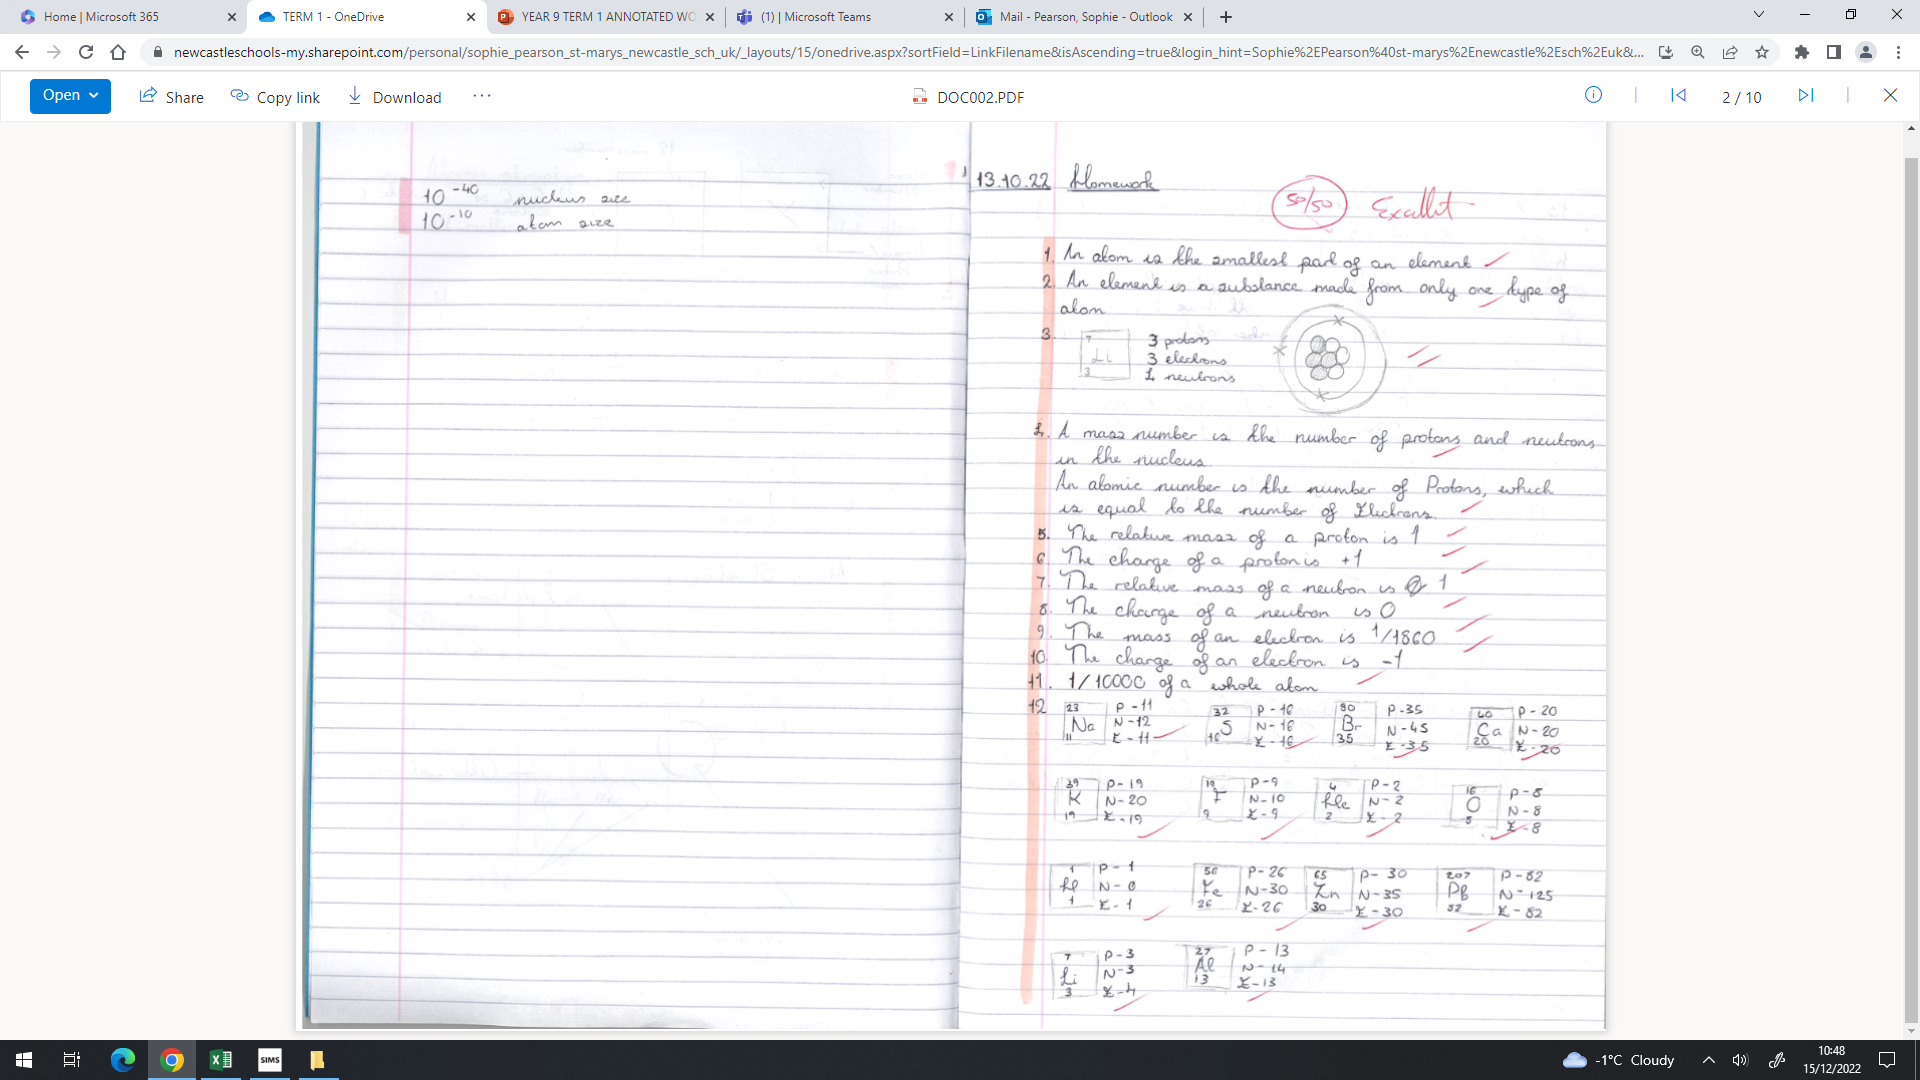 Home | Microsoft 365
TERM 1 - OneDrive
YEAR 9 TERM 1 ANNOTATED WO
(1) | Microsoft Teams
Mail - Pearson, Sophie - Outlook
newcastleschools-my.sharepoint.com/personal/sophie_pearson_st-marys_newcastle_sch_uk/_layouts/15/onedrive.aspx?sortField=LinkFilename&isAscending=true&login_hint=Sophie%2EPearson%40st-marys%2Enewcastle%2Esch%2Euk&...
Open
Share
Copy link
Download
DOC002.PDF
2 / 10
10⁻⁴⁰ nucleus size
10⁻¹⁰ atom size
13.10.22 Homework
50/50
1. An atom is the smallest part of an element
2. An element is a substance made from only one type of
atom
3.
7
Li
3
3 protons
3 electrons
4 neutrons
4. A mass number is the number of protons and neutrons
in the nucleus.
An atomic number is the number of Protons, which
is equal to the number of Electrons.
5. The relative mass of a proton is 1
6. The charge of a proton is +1
7. The relative mass of a neutron is 1
8. The charge of a neutron is 0
9. The mass of an electron is 1/1860
10. The charge of an electron is -1
11. 1/10000 of a whole atom
12
23 Na 11
P - 11
N - 12
E - 11
32 S 16
P - 16
N - 16
E - 16
80 Br 35
P - 35
N - 45
E - 35
40 Ca 20
P - 20
N - 20
E - 20
39 K 19
P - 19
N - 20
E - 19
19 F 9
P - 9
N - 10
E - 9
4 He 2
P - 2
N - 2
E - 2
16 O 8
P - 8
N - 8
E - 8
1 H 1
P - 1
N - 0
E - 1
56 Fe 26
P - 26
N - 30
E - 26
65 Zn 30
P - 30
N - 35
E - 30
207 Pb 82
P - 82
N - 125
E - 82
7 Li 3
P - 3
N - 3
E - 4
27 Al 13
P - 13
N - 14
E - 13
SIMS
-1°C Cloudy
10:48
15/12/2022